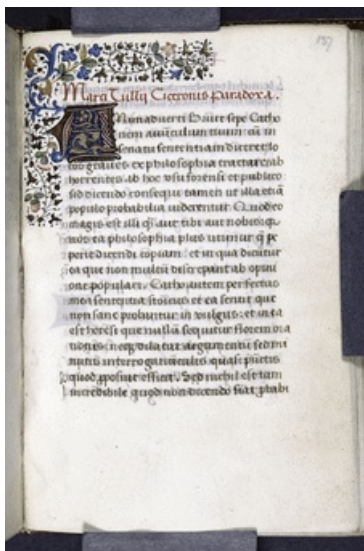 137
Marci Tullij Ciceronis Paradoxa.
ANimaduerti Brute sepe Catho
nem auunculum tuum cū in
senatu sententiam diceret lo
cos graues ex philosophia tractare ab
horrentes ab hoc usu forensi et publico
sed dicendo consequi tamen ut illa etiā
populo probabilia uiderentur. Quod eo
magis est illi aut tibi aut nobis: q
nos ea philosophia plus utimur q̄ pe
perit dicendi copiam: et in qua dicūtur
ea que non multū discrepant ab opini
one populari. Catho autem perfectus
mea sententia stoicus et ea sentit que
non sane probantur in uulgus: et in ea
est heresi que nullū sequitur florem ora
tionis: neq; dilatat argumentū sed mi
nutis interrogatiūculis quasi pūctis
quod pposuit efficit. Sed nichil est tam
incredibile quod non dicendo fiat pbabi